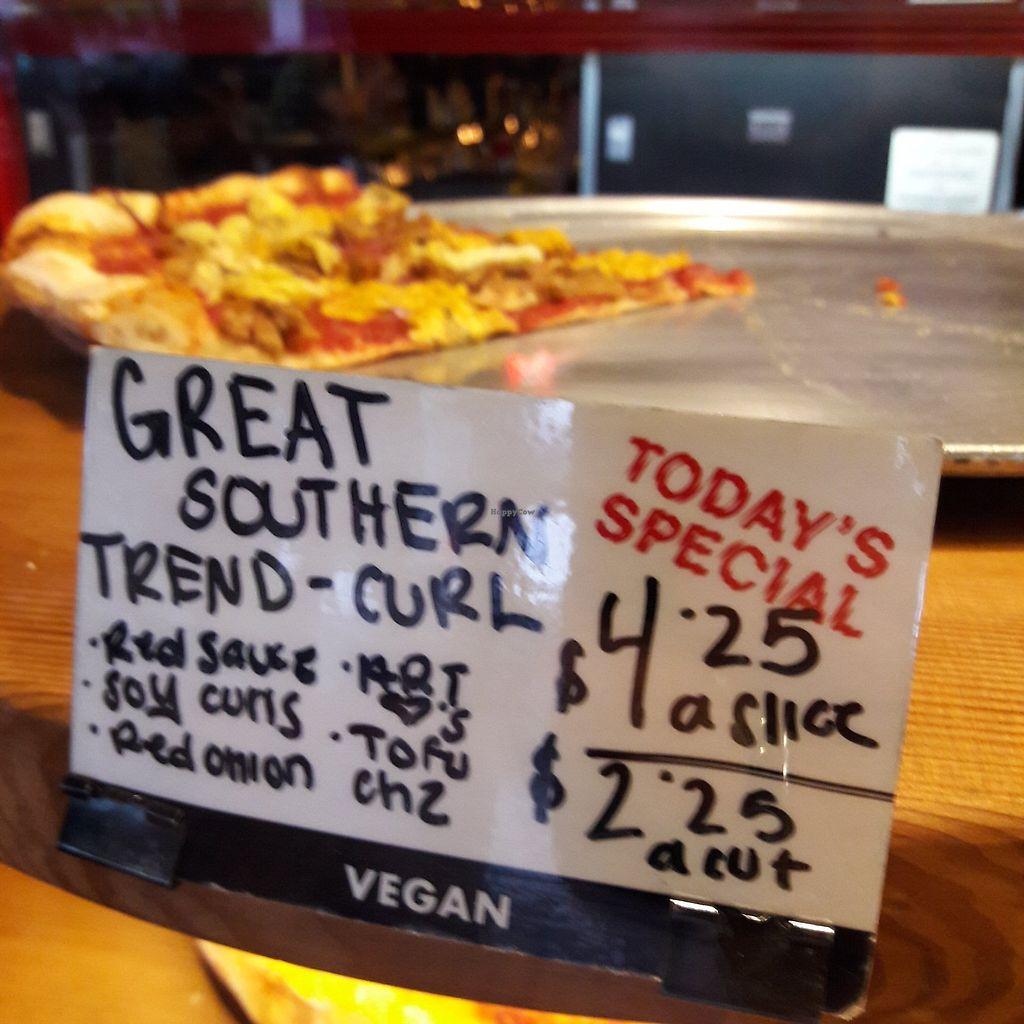 GREAT
SOUTHERN
TREND-CURL
• Red Sauce
• Soy Curls
• Red onion
• ART
♡'s
• TOFU
chz
TODAY'S
SPECIAL
$4.25
a slice
$2.25
a cut
VEGAN
HappyCow